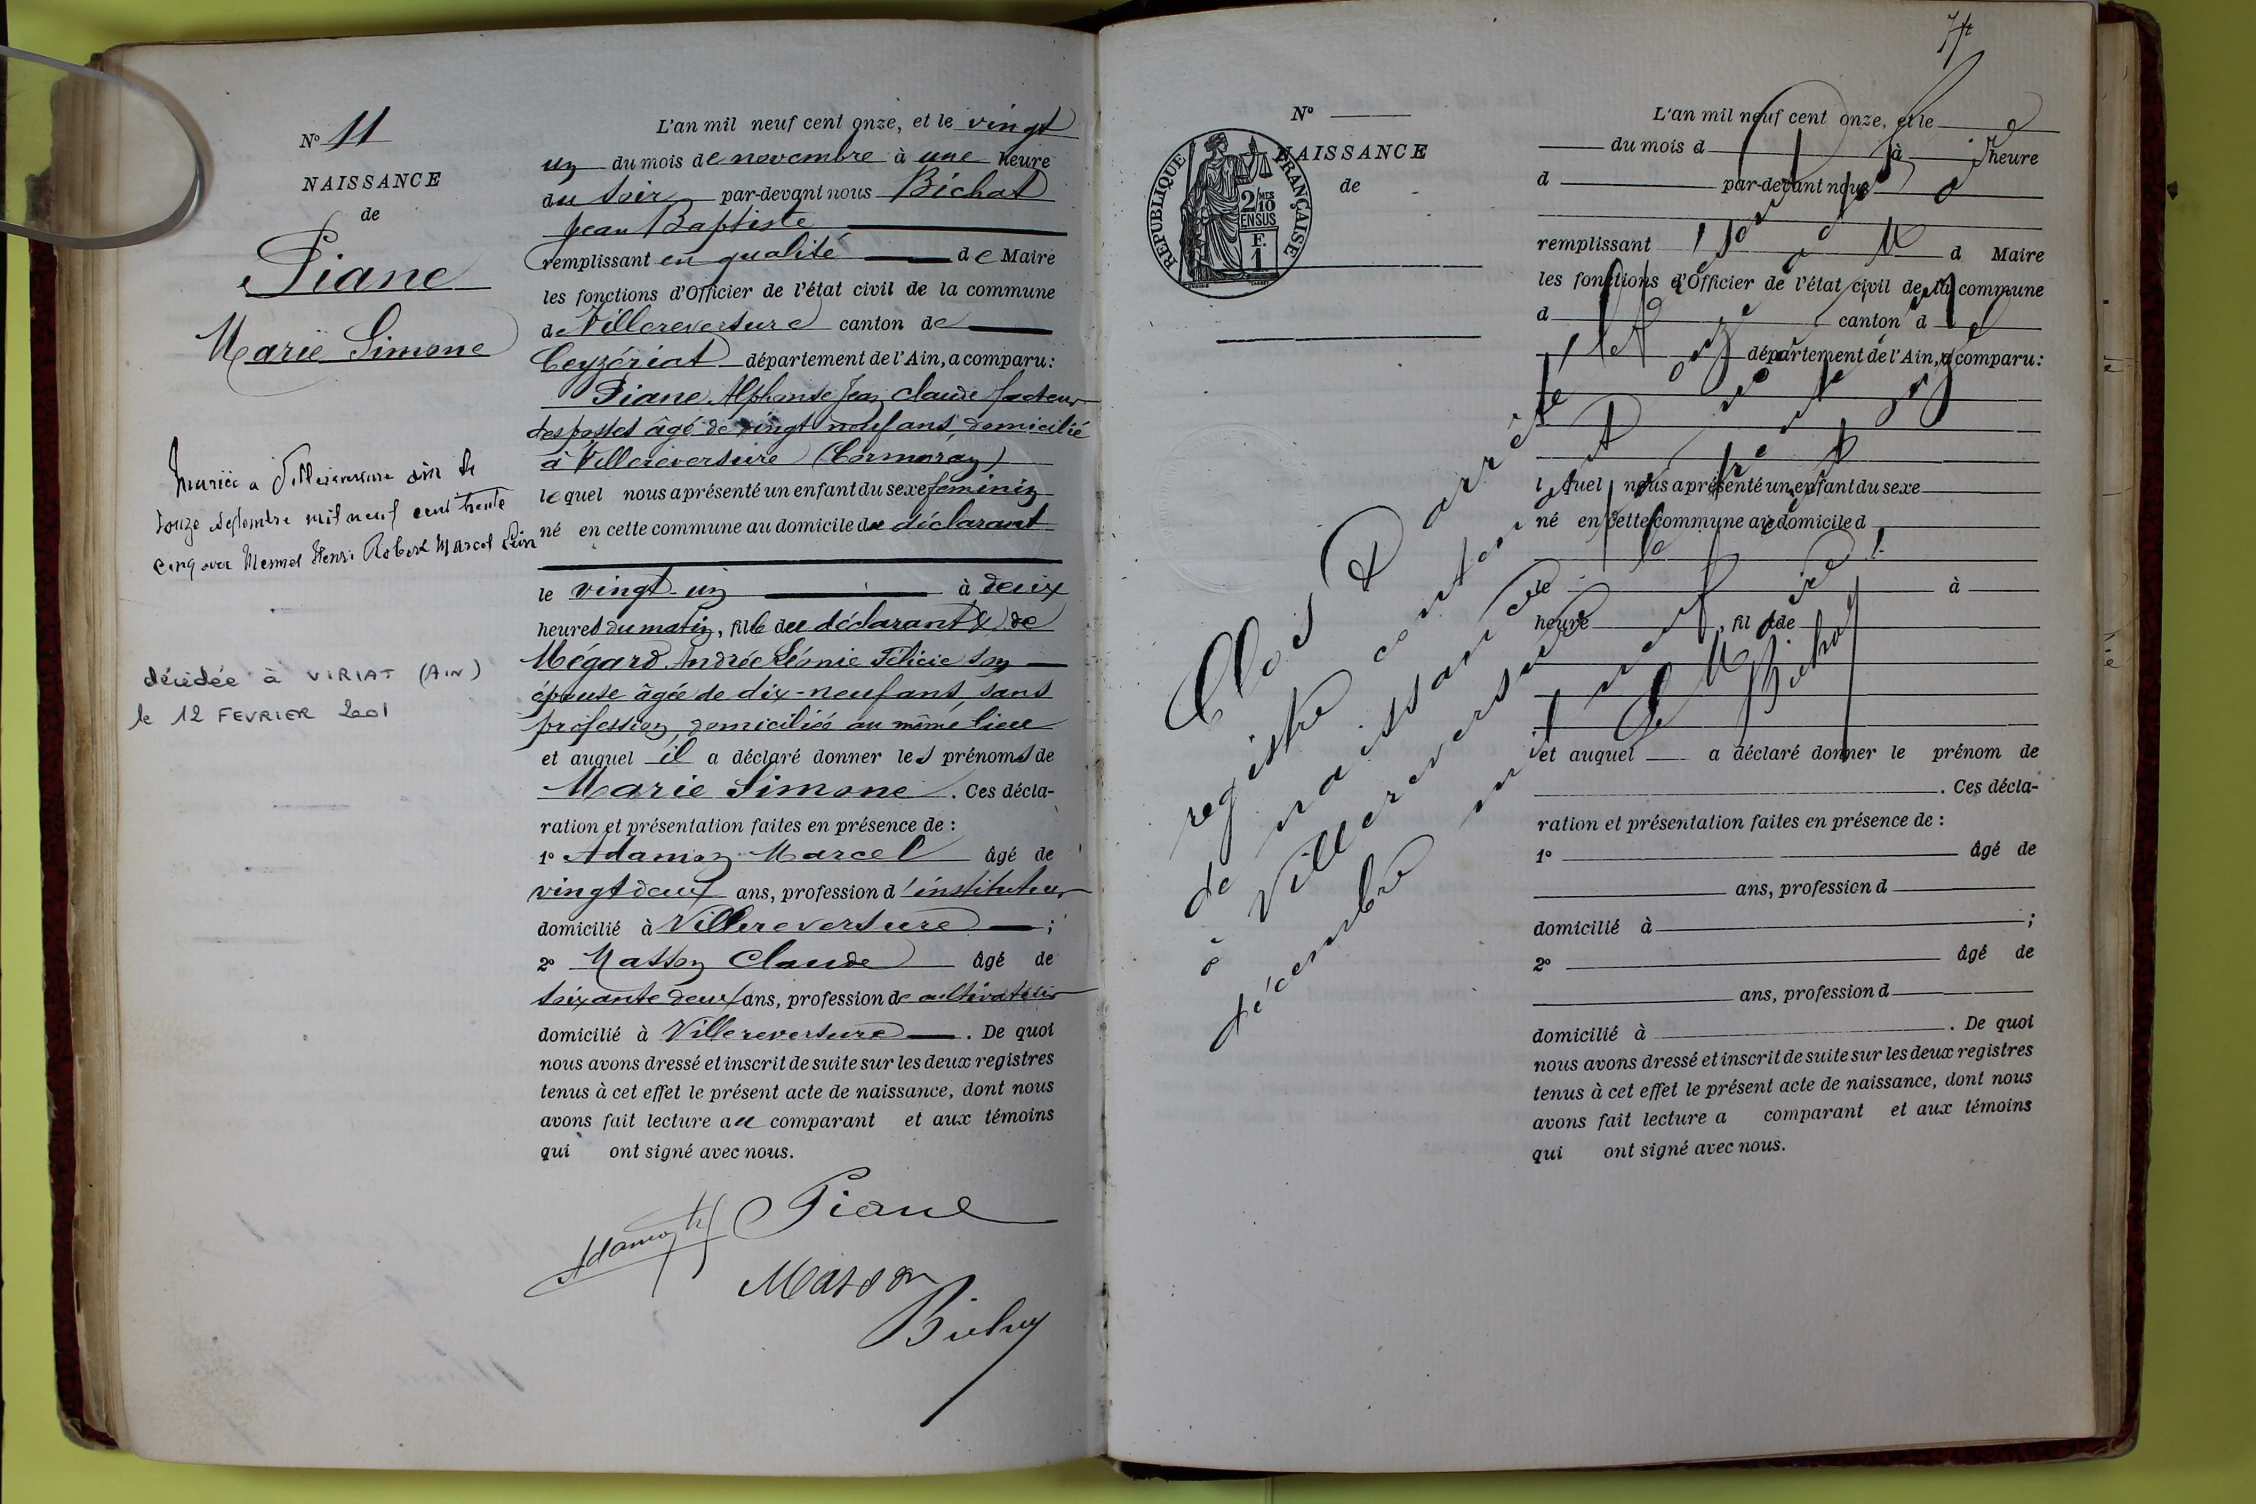 Nº 11
NAISSANCE
de
Piane
Marie Simone
Mariée à Villereversure Ain le
douze septembre mil neuf cent trente
cinq avec Mermet Henri Robert Marcel
décédée à VIRIAT (AIN)
le 12 FEVRIER 2001
L'an mil neuf cent onze, et le vingt
un du mois de novembre à une heure
du soir par-devant nous Bichat
Jean Baptiste
remplissant en qualité de Maire
les fonctions d'Officier de l'état civil de la commune
de Villereversure canton de
Ceyzériat département de l'Ain, a comparu :
Piane Alphonse Jean Claude facteur
des postes âgé de vingt neuf ans, domicilié
à Villereversure (Cormoran)
lequel nous a présenté un enfant du sexe féminin
né en cette commune au domicile du déclarant
le vingt un à deux
heures du matin, fille du déclarant & de
Mégard Andrée Léonie Félicie son
épouse âgée de dix-neuf ans, sans
profession, domiciliés au même lieu
et auquel il a déclaré donner les prénoms de
Marie Simone. Ces décla-
ration et présentation faites en présence de :
1º Adamon Marcel âgé de
vingt deux ans, profession d'instituteur
domicilié à Villereversure ;
2º Masson Claude âgé de
soixante deux ans, profession de cultivateur
domicilié à Villereversure. De quoi
nous avons dressé et inscrit de suite sur les deux registres
tenus à cet effet le présent acte de naissance, dont nous
avons fait lecture au comparant et aux témoins
qui ont signé avec nous.
Piane
Masson
7
Nº
NAISSANCE
de
REPUBLIQUE FRANÇAISE
2/10 MES
EN SUS
F.
1
L'an mil neuf cent onze, et le
du mois d à heure
d par-devant nous
remplissant d Maire
les fonctions d'Officier de l'état civil de la commune
d canton d
département de l'Ain, a comparu :
l quel nous a présenté un enfant du sexe
né en cette commune au domicile d
le à
heure , fil de
et auquel a déclaré donner le prénom de
. Ces décla-
ration et présentation faites en présence de :
1º âgé de
ans, profession d
domicilié à ;
2º âgé de
ans, profession d
domicilié à . De quoi
nous avons dressé et inscrit de suite sur les deux registres
tenus à cet effet le présent acte de naissance, dont nous
avons fait lecture a comparant et aux témoins
qui ont signé avec nous.
Clos & arrêté
registre contenant onze
de naissance
à Villereversure le trente
décembre mil neuf